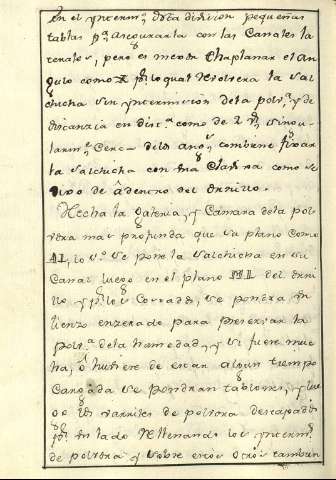 En el yntermº desta division pequeñas
tablas pª asegurarla con las Canales la
terales, pero es menester achaplanar el an
gulo como Z pr lo qual rebolvera la sal
chicha sin yntermision dela polvª y de
distanzia en distª como de 2
larmte Cerca delos angs combiene fixar
la salchicha con una Clavixa como se
dixo de âdentro del Ornillo.
Hecha la galeria, y Camara dela pol
vera mas profunda que su plano como
se pone la salchicha en su
Canal luego en el plano del orni
llo, y pr los Costads, se pondra un
lienzo enzerado para preservar la
polvª dela humedad, y si fuere mu
cha, ô hubiere de estar algun tiempo
Cargada se pondran tablones, y lue
go los varriles de polvora destapads
pr un lado rellenando los yntermos
de polvora y sobre estos otros tambien